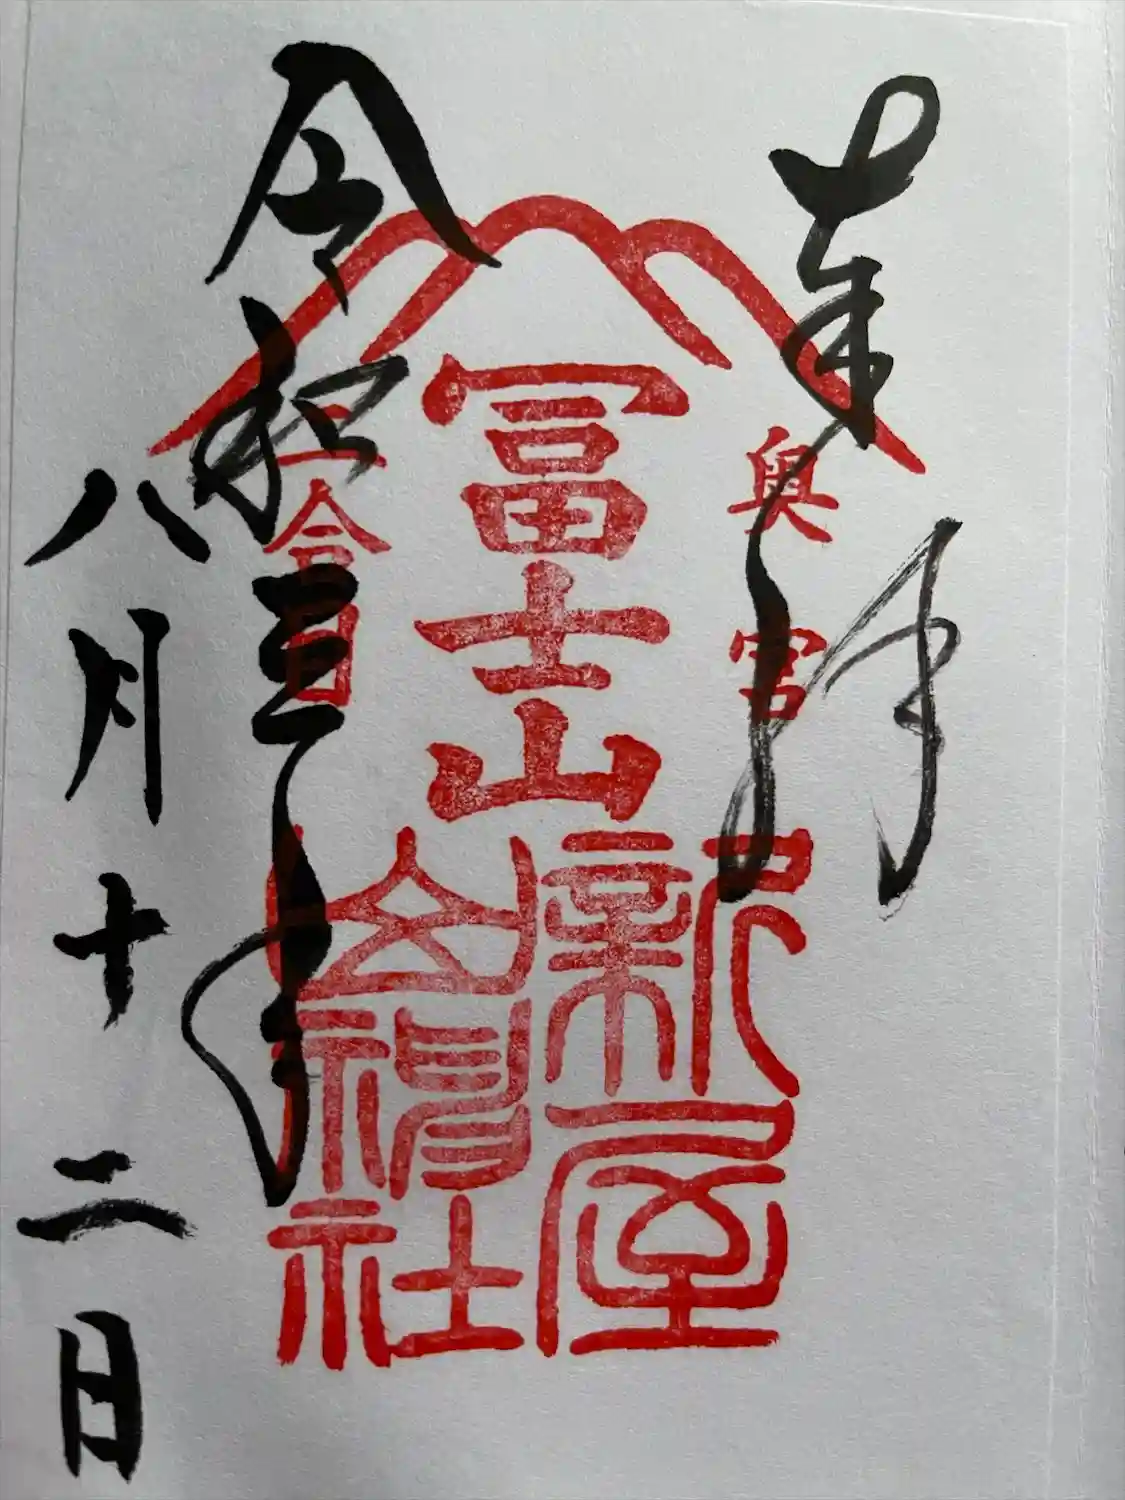 奉拝
奥宮
冨士山
新屋
山神社
二合目
令和三年
八月十二日